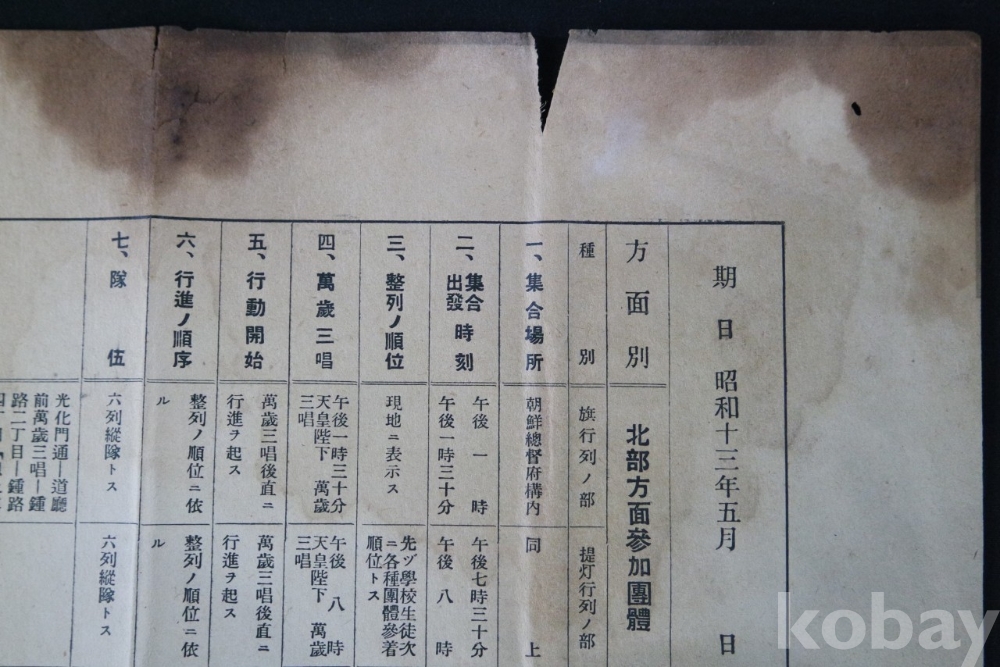 期日　昭和十三年五月　日
方面別　北部方面參加團體
種別　旗行列ノ部　提灯行列ノ部
一、集合場所　朝鮮總督府構內　同上
二、集合出發時刻　午後一時　午後七時三十分
午後一時三十分　午後八時
三、整列ノ順位　現地ニ表示ス　先ヅ學校生徒次
ニ各種團體參着
順位トス
四、萬歲三唱　午後一時三十分　午後八時
天皇陛下　萬歲　天皇陛下　萬歲
三唱　三唱
五、行動開始　萬歲三唱後直ニ　萬歲三唱後直ニ
行進ヲ起ス　行進ヲ起ス
六、行進ノ順序　整列ノ順位ニ依　整列ノ順位ニ依
ル　ル
七、隊伍　六列縱隊トス　六列縱隊トス
光化門通—道廳
前萬歲三唱—鍾
路二丁目—鍾路
kobay